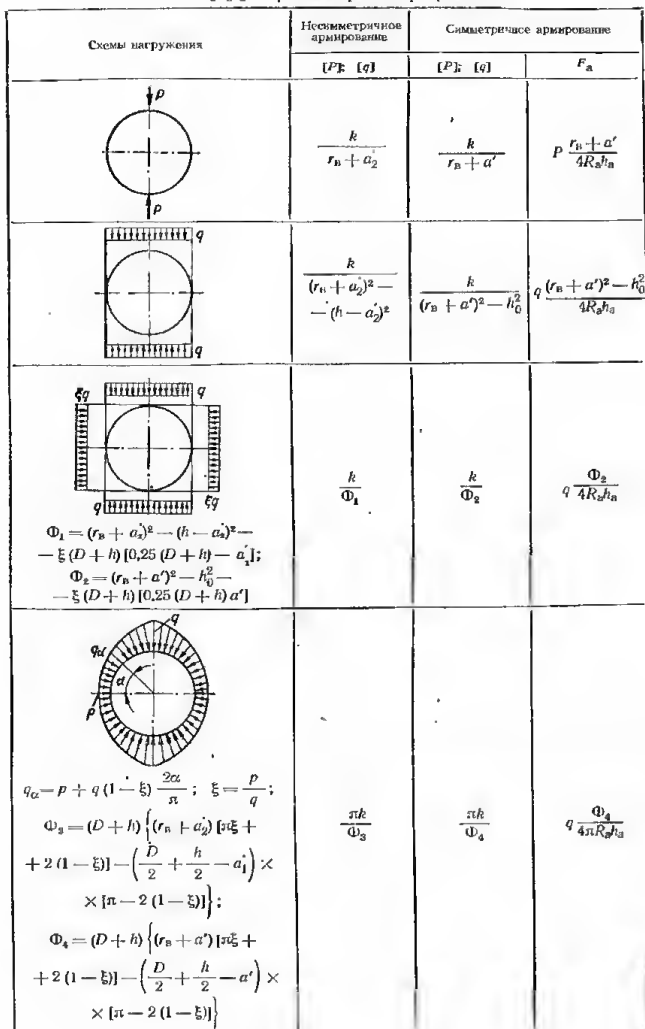 Схемы нагружения
Несимметричное армирование
Симметричное армирование
[P]; [q]
[P]; [q]
F_a
P
P
k / (r_в + a′_2)
k / (r_в + a′)
P (r_в + a′) / (4R_a h_a)
q
q
k / ((r_в + a′_2)² — — (h — a′_2)²)
k / ((r_в + a′)² — h_0²)
q ((r_в + a′)² — h_0²) / (4R_a h_a)
q
ξq
q
ξq
Φ_1 = (r_в + a′_2)² — (h — a′_2)² —
— ξ (D + h) [0,25 (D + h) — a′_1];
Φ_2 = (r_в + a′)² — h_0² —
— ξ (D + h) [0,25 (D + h) a′]
k / Φ_1
k / Φ_2
q Φ_2 / (4R_a h_a)
q
q_α
α
P
q_α = p + q (1 — ξ) 2α/π; ξ = p/q;
Φ_3 = (D + h) {(r_в + a′_2) [πξ +
+ 2 (1 — ξ)] — (D/2 + h/2 — a′_1) ×
× [π — 2 (1 — ξ)]};
Φ_4 = (D + h) {(r_в + a′) [πξ +
+ 2 (1 — ξ)] — (D/2 + h/2 — a′) ×
× [π — 2 (1 — ξ)]}
πk / Φ_3
πk / Φ_4
q Φ_4 / (4πR_a h_a)